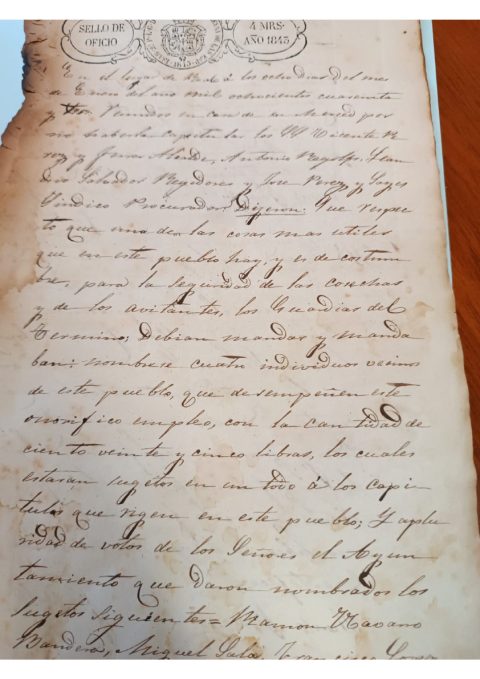 SELLO DE OFICIO
4 MRS.
AÑO 1843
En el lugar de a los ocho dias del mes
de Enero del año mil ochocientos cuarenta
y tres Reunidos en casa de su Merced por
no haberla capitular los SS Vicente
y Antonio
Salvador Regidores y Jose Perez y
Sindico Procurador: Dijeron: Que respec
to que una de las cosas mas utiles
que en este pueblo hay, y es de costum
bre, para la seguridad de las cosechas
y de los avitantes, los Guardias del
termino; Debian mandar y manda
ban: nombrese cuatro individuos vecinos
de este pueblo, que desempeñen este
onorifico empleo, con la cantidad de
ciento veinte y cinco libras, los cuales
estarán sugetos en un todo á los capi
tulos que rigen en este pueblo; Y a plu
ridad de votos de los Señores el Ayun
tamiento que daron nombrados los
Sugetos Siguientes = Ramon Navarro
Bandera, Miguel Sala, Francisco